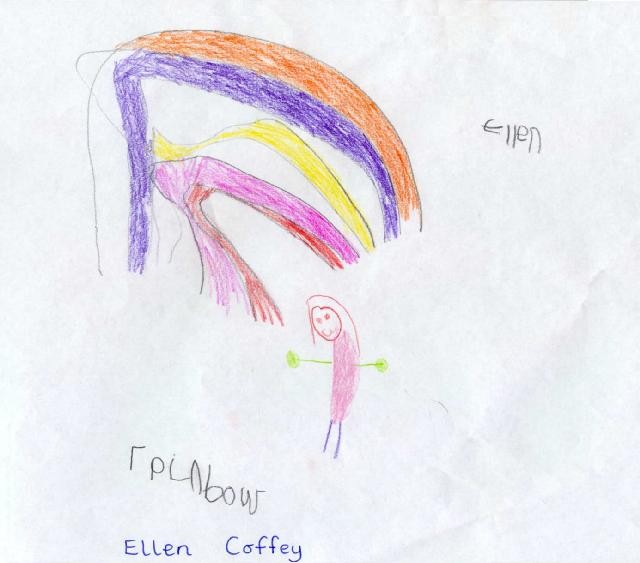 Ellen
rainbow
Ellen Coffey